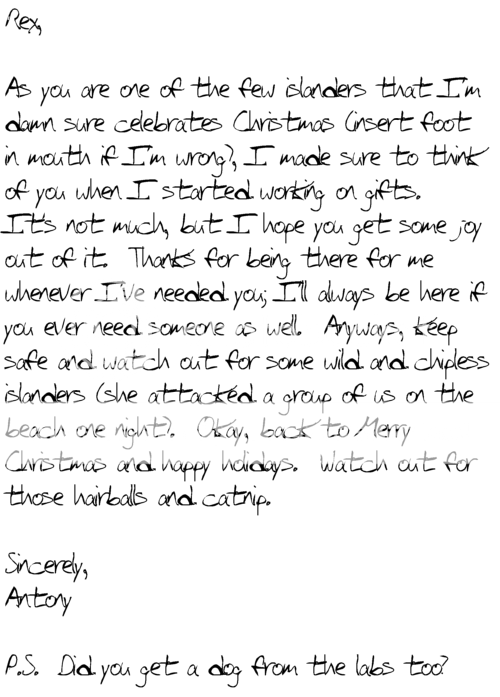 Rex,
As you are one of the few islanders that I'm
damn sure celebrates Christmas (insert foot
in mouth if I'm wrong?), I made sure to think
of you when I started working on gifts.
It's not much, but I hope you get some joy
out of it.  Thanks for being there for me
whenever I've needed you; I'll always be here if
you ever need someone as well.  Anyways, keep
safe and watch out for some wild and chipless
islanders (she attacked a group of us on the
beach one night).  Okay, back to Merry
Christmas and happy holidays.  Watch out for
those hairballs and catnip.
Sincerely,
Antony
P.S.  Did you get a dog from the labs too?